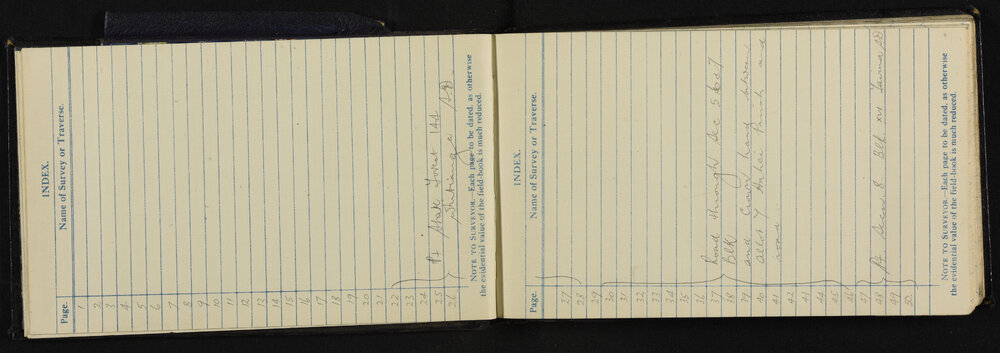 INDEX.
Page. Name of Survey or Traverse.
1
2
3
4
5
6
7
8
9
10
11
12
13
14
15
16
17
18
19
20
21
22
23
24
25 Pt State Forest 144
26 Whatianga S.D.
NOTE TO SURVEYOR.—Each page to be dated, as otherwise
the evidential value of the field-book is much reduced.
INDEX.
Page. Name of Survey or Traverse.
27
28
29
30
31
32
33
34
35
36
37 Road through Sec 5 6 & 7
38 Blk
39 and Crown Land
40 Allot 7 Parish and
41 road
42
43
44
45
46
47
48 Pt Secn 8 Blk XVI SD
49
50
NOTE TO SURVEYOR.—Each page to be dated, as otherwise
the evidential value of the field-book is much reduced.